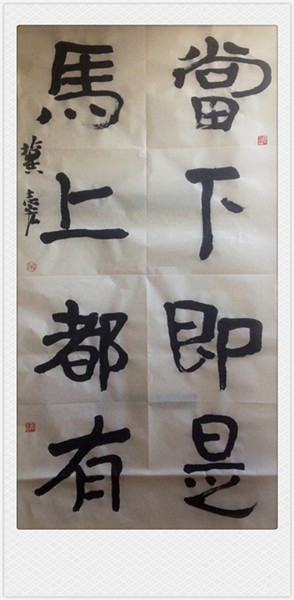 當下即是
馬上都有